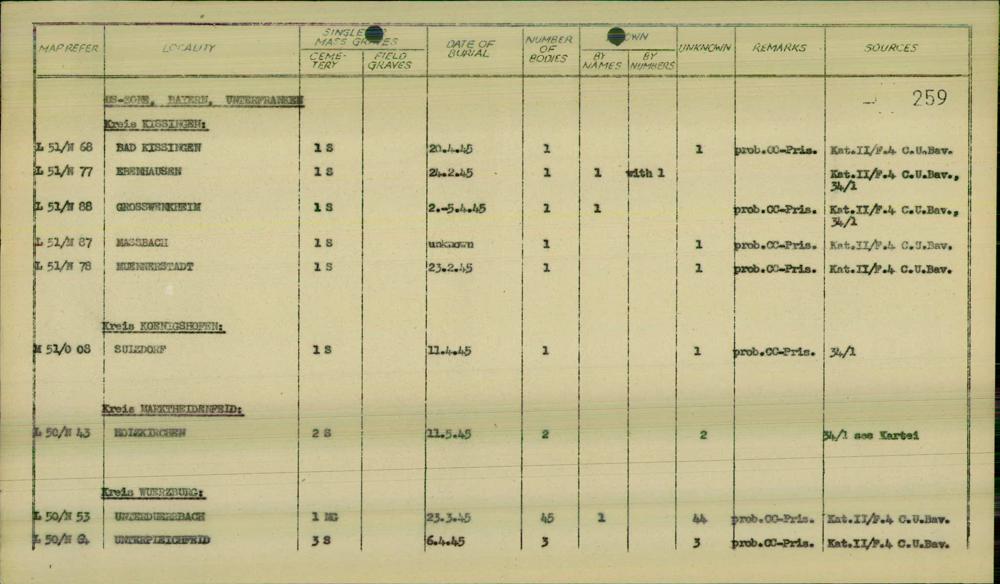 MAP REFER LOCALITY SINGLE OR MASS GRAVES CEMETERY FIELD GRAVES DATE OF BURIAL NUMBER OF BODIES KNOWN BY NAMES BY NUMBERS UNKNOWN REMARKS SOURCES
US-ZONE, BAYERN, UNTERFRANKEN 259
Kreis KISSINGEN:
L 51/N 68 BAD KISSINGEN 1 S 20.4.45 1 1 prob.CC-Pris. Kat.II/F.4 C.U.Bav.
L 51/N 77 EBENHAUSEN 1 S 24.2.45 1 1 with 1 Kat.II/F.4 C.U.Bav.,
34/1
L 51/N 88 GROSSWENKHEIM 1 S 2.-5.4.45 1 1 prob.CC-Pris. Kat.II/F.4 C.U.Bav.,
34/1
L 51/N 87 MASSBACH 1 S unknown 1 1 prob.CC-Pris. Kat.II/F.4 C.U.Bav.
L 51/N 78 MUENNERSTADT 1 S 23.2.45 1 1 prob.CC-Pris. Kat.II/F.4 C.U.Bav.
Kreis KOENIGSHOFEN:
M 51/O 08 SULZDORF 1 S 11.4.45 1 1 prob.CC-Pris. 34/1
Kreis MARKTHEIDENFELD:
L 50/N 43 HOLZKIRCHEN 2 S 11.5.45 2 2 34/1 see Kartei
Kreis WUERZBURG:
L 50/N 53 UNTERDUERRBACH 1 MG 23.3.45 45 1 44 prob.CC-Pris. Kat.II/F.4 C.U.Bav.
L 50/N 64 UNTERPLEICHFELD 3 S 6.4.45 3 3 prob.CC-Pris. Kat.II/F.4 C.U.Bav.